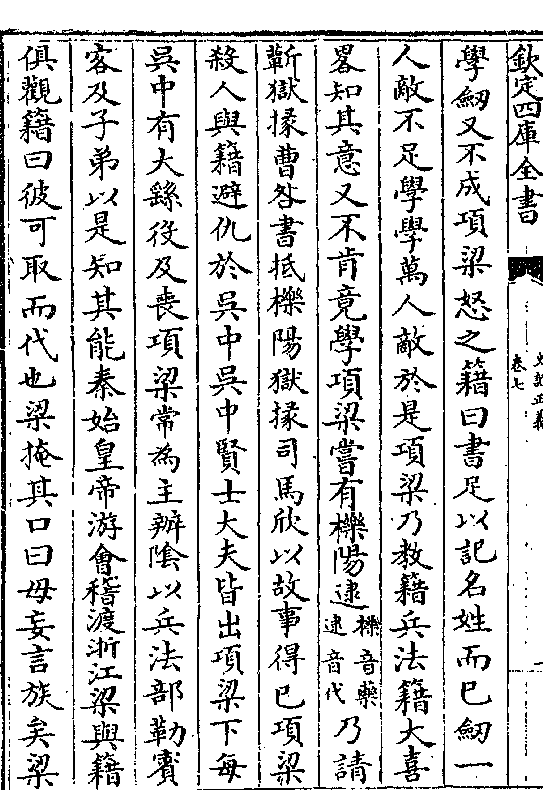 欽定四庫全書
史記正義
卷七
學劒又不成項梁怒之籍曰書足以記名姓而已劒一
人敵不足學學萬人敵於是項梁乃教籍兵法籍大喜
畧知其意又不肯竟學項梁嘗有櫟陽逮櫟音藥逮音代乃請
蘄獄掾曹咎書抵櫟陽獄掾司馬欣以故事得已項梁
殺人與籍避仇於吳中吳中賢士大夫皆出項梁下每
吳中有大繇役及喪項梁常為主辦陰以兵法部勒賓
客及子弟以是知其能秦始皇帝游會稽渡浙江梁與籍
俱觀籍曰彼可取而代也梁掩其口曰毋妄言族矣梁